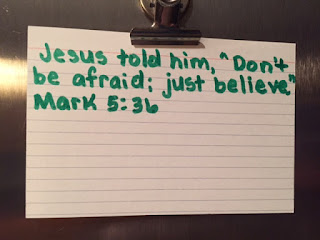 Jesus told him, "Don't
be afraid; just believe."
Mark 5:36